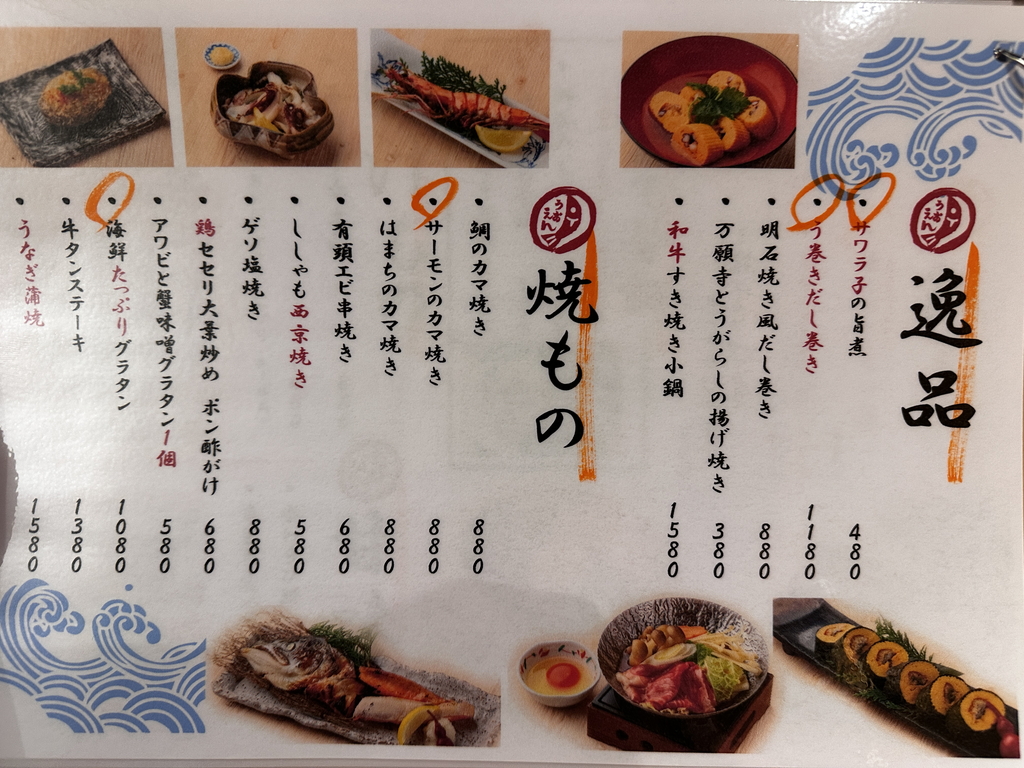 逸品
うおえん
サワラ子の旨煮 480
う巻きだし巻き 1180
明石焼き風だし巻き 880
万願寺とうがらしの揚げ焼き 380
和牛すき焼き小鍋 1580
焼もの
うおえん
鯛のカマ焼き 880
サーモンのカマ焼き 880
はまちのカマ焼き 880
有頭エビ串焼き 680
ししゃも西京焼き 580
ゲソ塩焼き 880
鶏セセリ大葉炒め ポン酢がけ 680
アワビと蟹味噌グラタン1個 580
海鮮たっぷりグラタン 1080
牛タンステーキ 1380
うなぎ蒲焼 1580